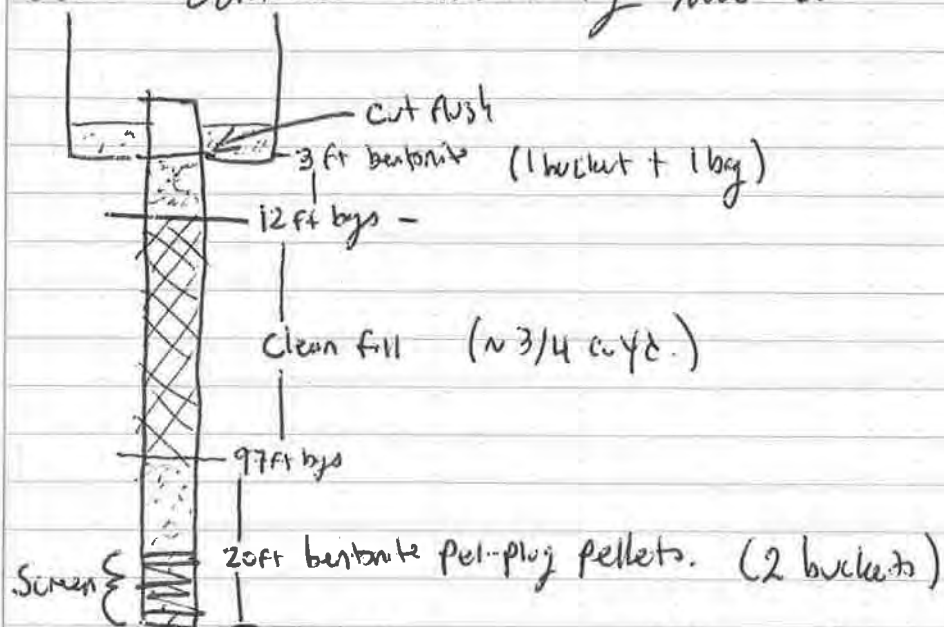 cut flush
3 ft bentonite (1 bucket + 1 bag)
12 ft bgs -
Clean fill (~ 3/4 cu yd.)
97 ft bgs
20 ft bentonite pel-plug pellets. (2 buckets)
Screen